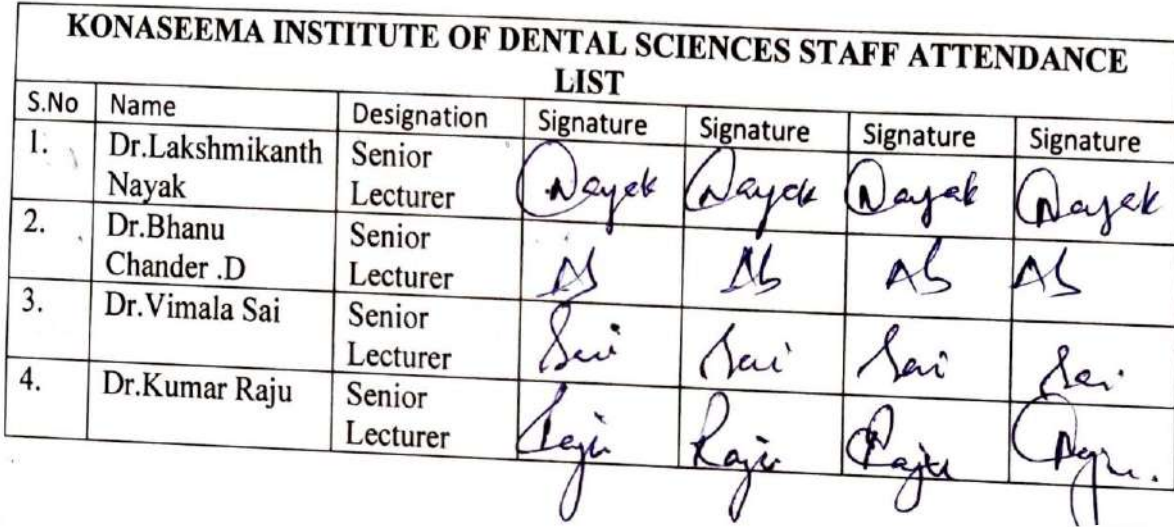 KONASEEMA INSTITUTE OF DENTAL SCIENCES STAFF ATTENDANCE
LIST
S.No Name Designation Signature Signature Signature Signature
1. Dr.Lakshmikanth Senior
Nayak Lecturer Nayak Nayak Nayak Nayak
2. Dr.Bhanu Senior
Chander .D Lecturer Ab Ab Ab Ab
3. Dr.Vimala Sai Senior
Lecturer Sai Sai Sai Sai
4. Dr.Kumar Raju Senior
Lecturer Raju Raju Raju Raju.